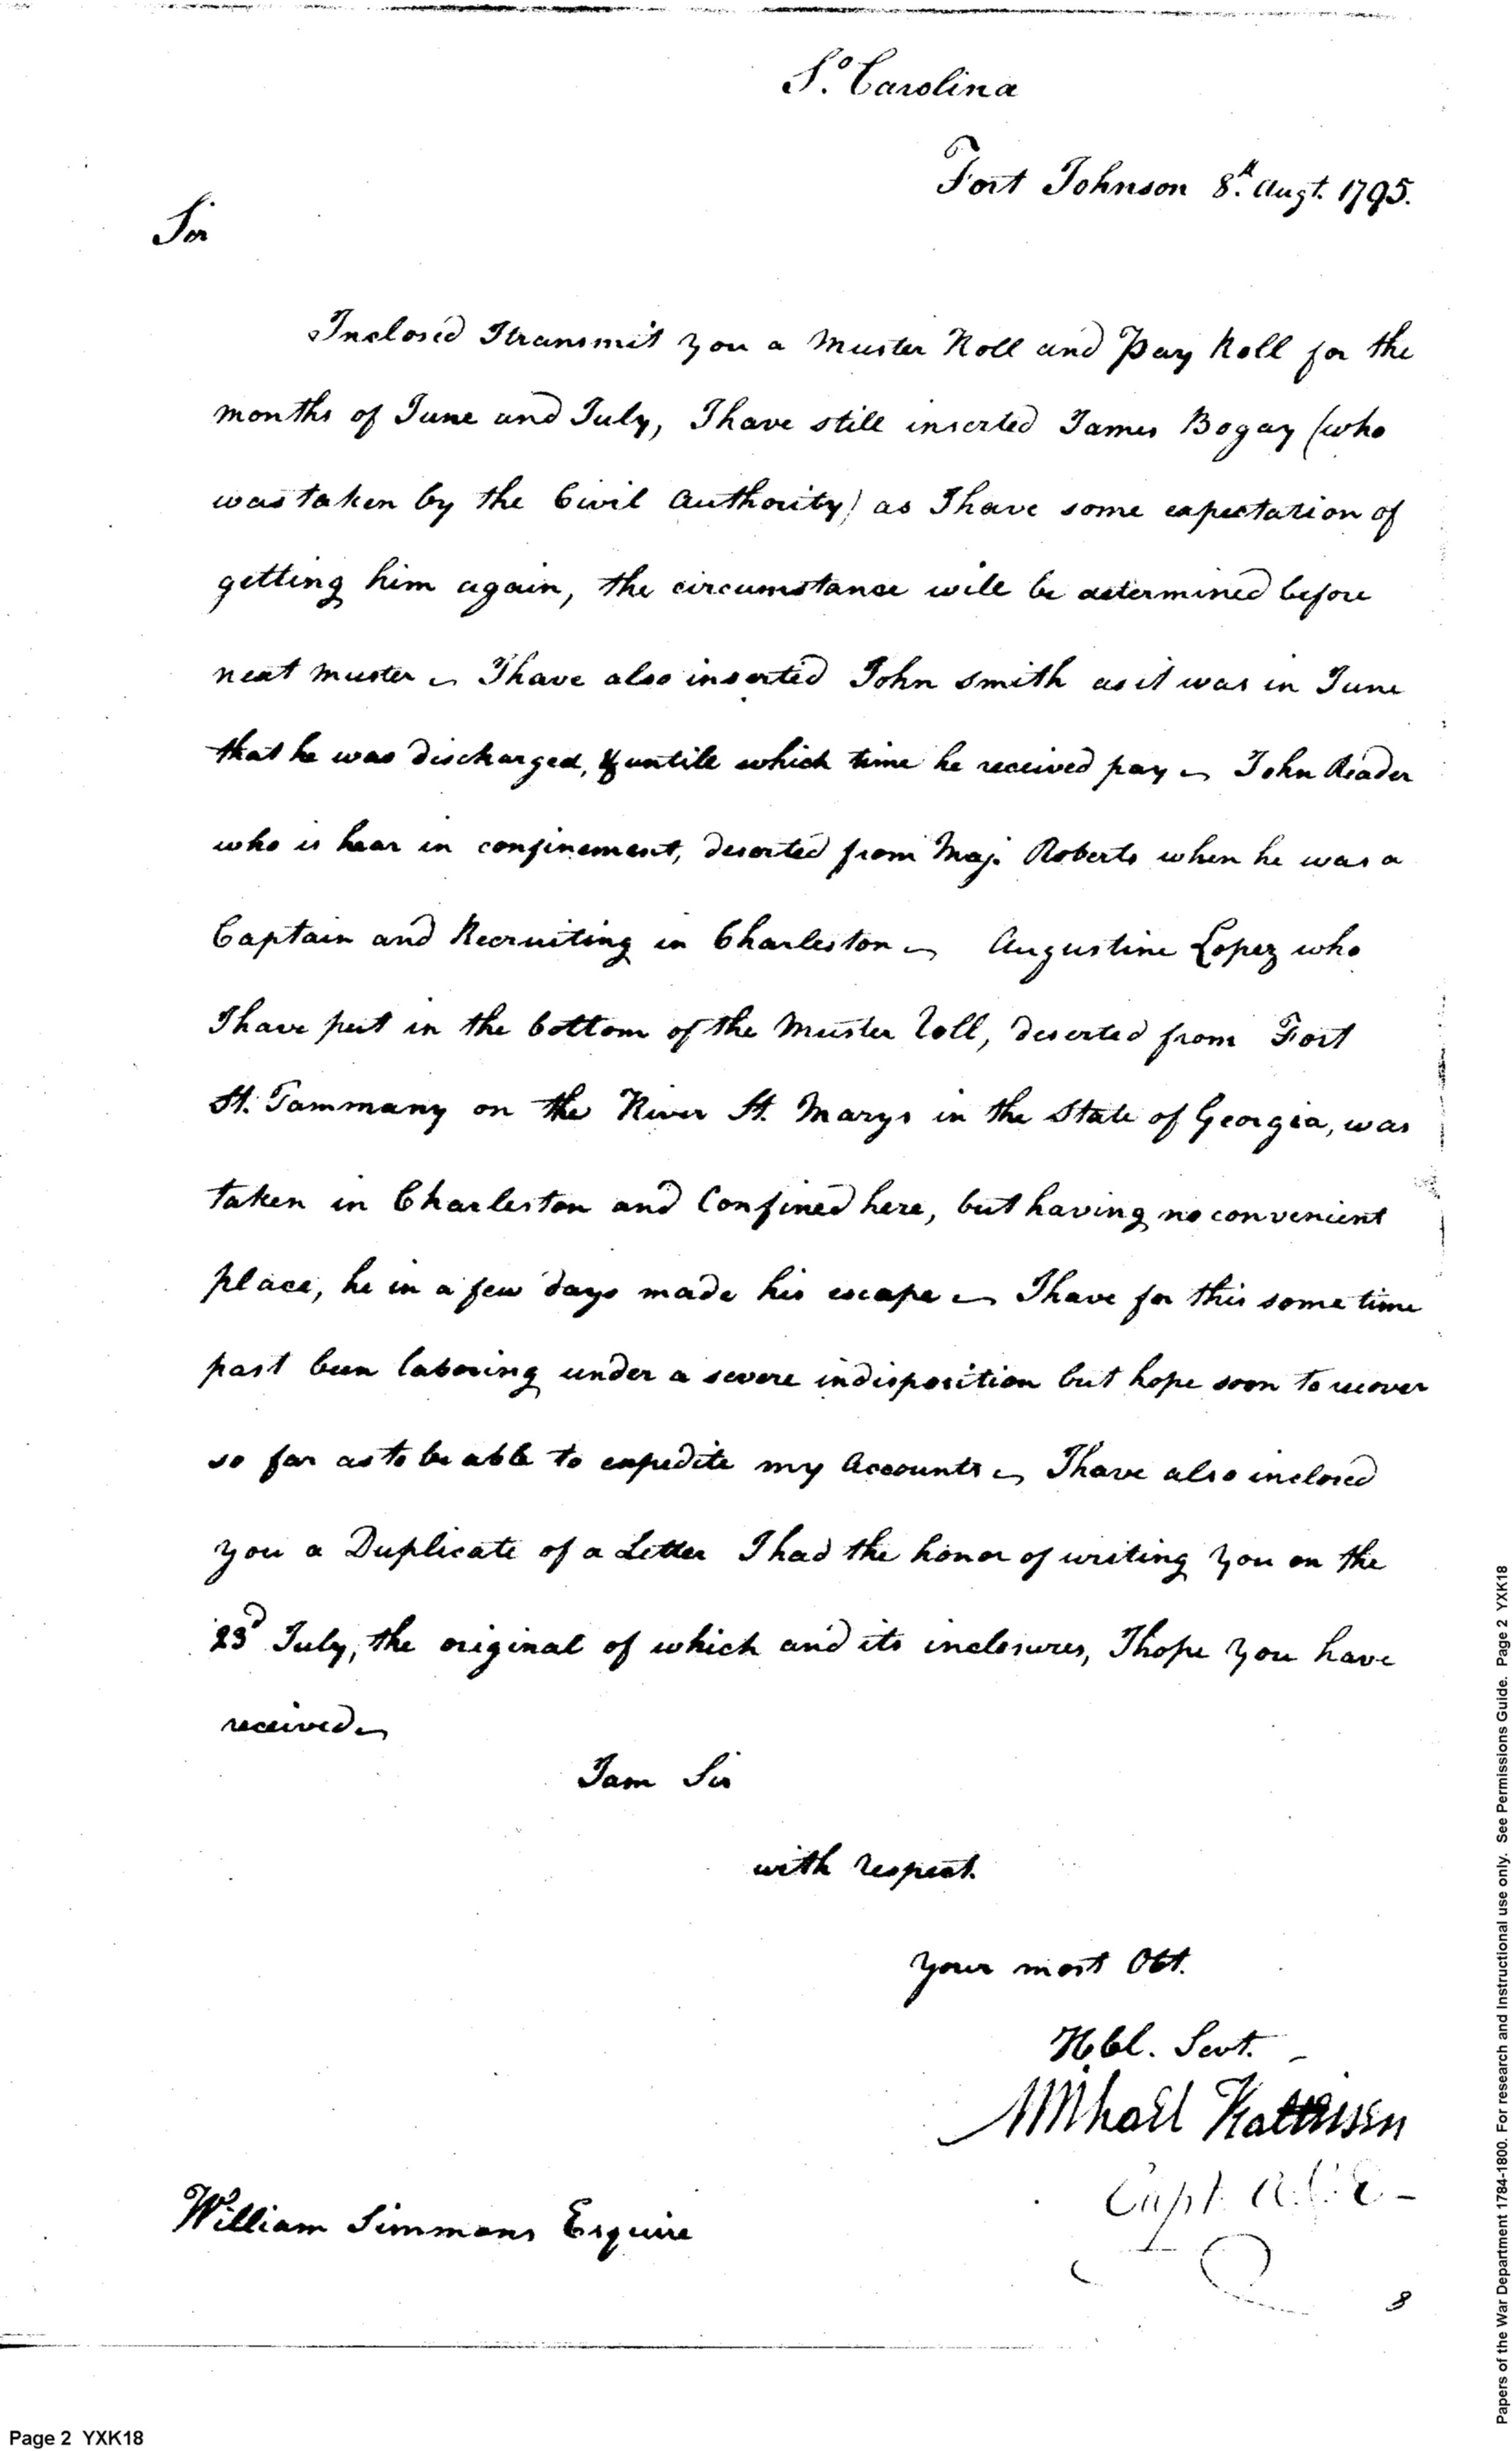 So. Carolina
Fort Johnson 8th. Augt. 1795.
Sir
Inclosed I transmit you a Muster Roll and Pay Roll for the
months of June and July, I have still inserted James Bogay (who
was taken by the Civil Authority) as I have some expectation of
getting him again, the circumstance will be determined before
next muster – I have also inserted John Smith as it was in June
that he was discharged, & untill which time he received pay – John Reader
who is hear in confinement, deserted from Maj. Roberts when he was a
Captain and Recruiting in Charleston – Augustine Lopez who
I have put in the bottom of the Muster roll, deserted from Fort
St. Tammany on the River St. Marys in the State of Georgia, was
taken in Charleston and Confined here, but having no convenient
place, he in a few days made his escape – I have for this some time
past been laboring under a severe indisposition but hope soon to recover
so far as to be able to expedite my Accounts – I have also inclosed
you a Duplicate of a Letter I had the honor of writing you on the
23d July, the original of which and its inclosures, I hope you have
received –
I am Sir
with respect.
your most Obt.
Hbl. Servt.
Michael Kalteisen
Capt. A. & E –
William Simmons Esquire
8
Page 2 YXK18
Papers of the War Department 1784-1800. For research and Instructional use only. See Permissions Guide. Page 2 YXK18